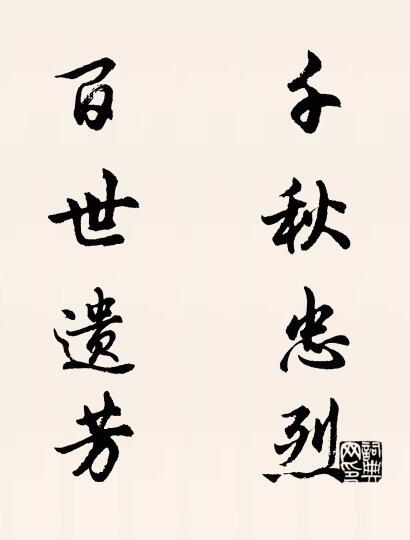 千秋忠烈
百世遗芳
詞典網印